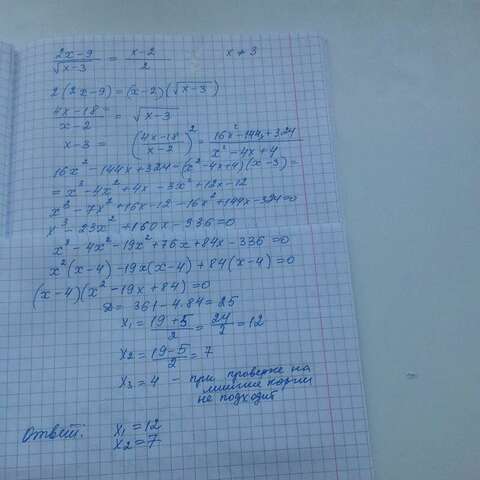 (2x-9)/√(x-3) = (x-2)/2    x ≠ 3
2(2x-9)=(x-2)(√x-3)
(4x-18)/(x-2) = √x-3
x-3 = ((4x-18)/(x-2))² = (16x²-144x+324)/(x²-4x+4)
16x²-144x+324=(x²-4x+4)(x-3)=
= x³-4x²+4x-3x²+12x-12
x³-7x²+16x-12-16x²+144x-324=0
x³-23x²+160x-336=0
x³-4x²-19x²+76x+84x-336=0
x²(x-4)-19x(x-4)+84(x-4)=0
(x-4)(x²-19x+84)=0
D=361-4·84=25
x₁=(19+5)/2=24/2=12
x₂=(19-5)/2=7
x₃=4 - при проверке на
лишние корни
не подходит
Ответ: x₁=12
x₂=7